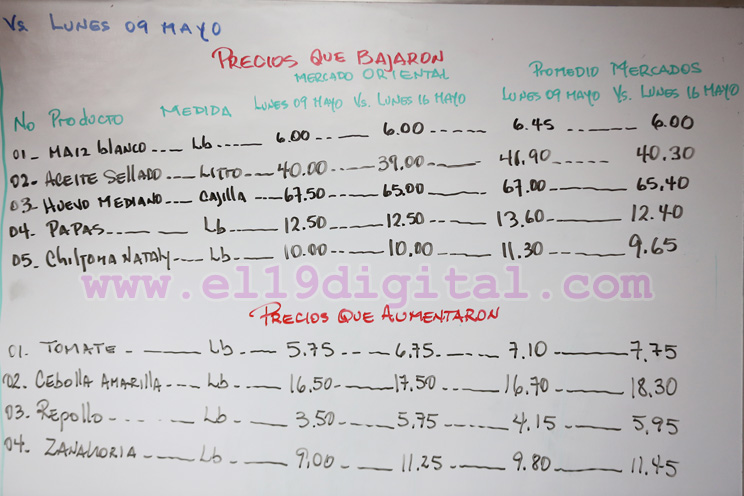 Vs. LUNES 09 MAYO
PRECIOS QUE BAJARON
MERCADO ORIENTAL PROMEDIO MERCADOS
No PRODUCTO MEDIDA LUNES 09 MAYO Vs. LUNES 16 MAYO LUNES 09 MAYO Vs. LUNES 16 MAYO
01_ MAIZ blANCO---- Lb ---- 6.00 ------ 6.00 ------ 6.45 ------ 6.00
02- ACEITE SELLADO -- LITRO -- 40.00 ---- 39.00 ---- 41.90 ---- 40.30
03- HUEVO MEDIANO--- CAJILLA --- 67.50 ---- 65.00 ---- 67.00 ---- 65.40
04- PAPAS------ Lb --- 12.50 --- 12.50 ---- 13.60 ---- 12.40
05- ChILTOMA NATALY---- Lb --- 10.00 --- 10.00 ---- 11.30 ---- 9.65
www.el19digital.com
PRECIOS QUE AUMENTARON
01. TOMATE - ------ Lb -- 5.75 --- 6.75 ---- 7.10 ------ 7.75
02. CEBOLLA AMARILLA--- Lb -- 16.50 ---- 17.50 ---- 16.70 ------ 18.30
03. REPOLLO - ---- Lb --- 3.50 ---- 5.75 ---- 4.15 ------ 5.95
04. ZANAHORIA ------ Lb --- 9.00 ---- 11.25 ---- 9.80 ------ 11.45